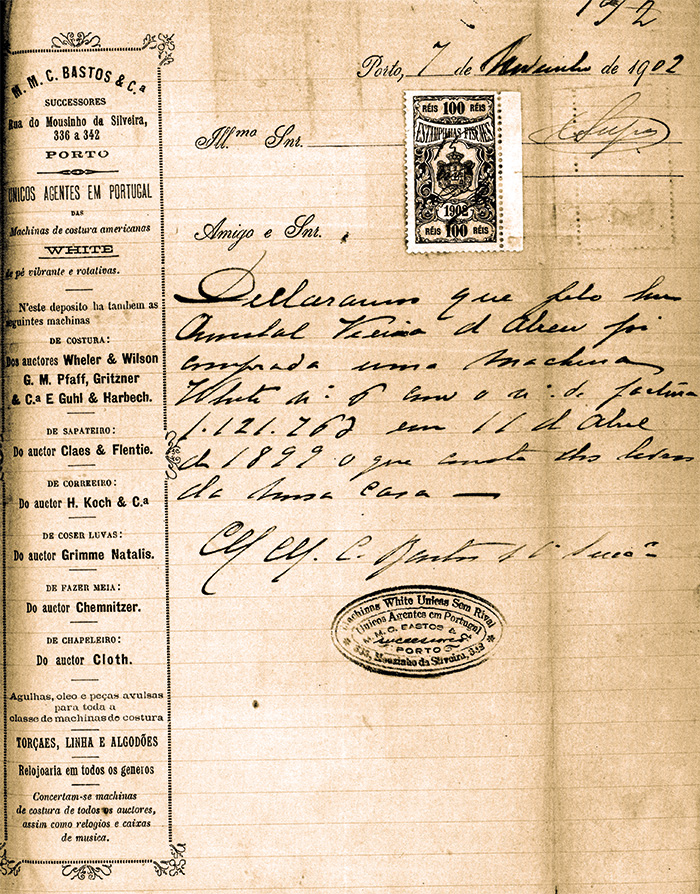 M. M. C. BASTOS & C.ª
SUCCESSORES
Rua do Mousinho da Silveira,
336 a 342
PORTO
UNICOS AGENTES EM PORTUGAL
DAS
Machinas de costura americanas
WHITE
de pé vibrante e rotativas.
N'este deposito ha tambem as
seguintes machinas
DE COSTURA:
Dos auctores Wheler & Wilson
G. M. Pfaff, Gritzner
& C.ª E Guhl & Harbech.
DE SAPATEIRO:
Do auctor Claes & Flentie.
DE CORREEIRO:
Do auctor H. Koch & C.ª
DE COSER LUVAS:
Do auctor Grimme Natalis.
DE FAZER MEIA:
Do auctor Chemnitzer.
DE CHAPELEIRO:
Do auctor Cloth.
Agulhas, oleo e peças avulsas
para toda a
classe de machinas de costura
TORÇAES, LINHA E ALGODÕES
Relojoaria em todos os generos
Concertam-se machinas
de costura de todos os auctores,
assim como relogios e caixas
de musica.
Porto, 7 de Novembro de 1902
Ill.mo Snr.
RÉIS 100 RÉIS
ESTAMPILHAS FISCAES
1902
RÉIS 100 RÉIS
Amigo e Snr.
Declaramos que pelo
Annibal Vieira d'Abreu foi
comprada uma machina
White n.º 6 com o n.º de factura
1.121.763 em 11 d'Abril
de 1899 o que consta dos livros
da nossa casa —
M. M. C. Bastos & C.ª
Machinas White Unicas Sem Rival
Unicos Agentes em Portugal
M. M. C. BASTOS & C.ª
successores
PORTO
336, Mousinho da Silveira, 342